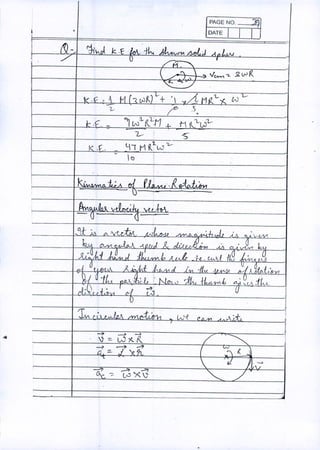 PAGE NO.
DATE
Q- Find K.E for the shown solid sphere.
M
R
ω
Vcm = 3ωR
K.E = 1/2 M(3ωR)² + 1/2 × 2/5 MR² × ω²
K.E. = 9ω²R²M/2 + MR²ω²/5
K.E. = 47MR²ω²/10
Kinematics of Plane Rotation
Angular velocity vector
It is a vector whose magnitude is given
by angular speed & direction is given by
right hand thumb rule i.e. curl the fingers
of your right hand in the sense of rotation
of the particle. Now the thumb gives the
direction of ω⃗.
In circular motion, we can write
v⃗ = ω⃗ × R⃗
a⃗t = α⃗ × R⃗
a⃗c = ω⃗ × v⃗
ω
R
V⃗